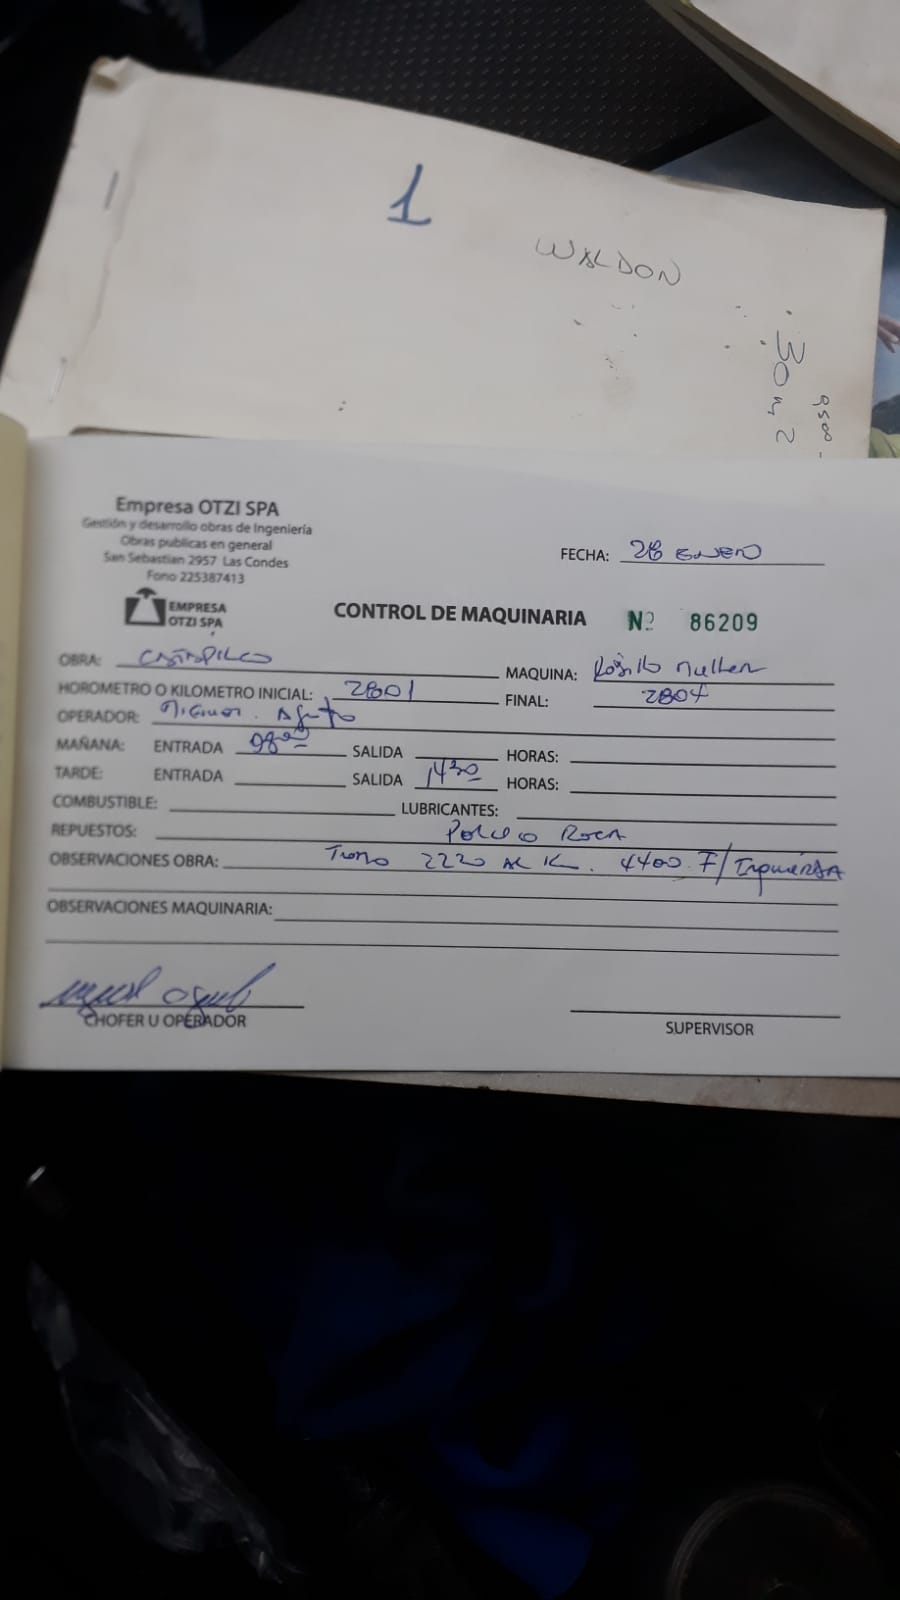 1
WALDON
30 m 2
Empresa OTZI SPA
Gestión y desarrollo obras de Ingeniería
Obras publicas en general
San Sebastian 2957 Las Condes
Fono 225387413
EMPRESA
OTZI SPA
FECHA: 28 ENERO
CONTROL DE MAQUINARIA Nº 86209
OBRA: CATAPILCO MAQUINA: Rodillo Muller
HOROMETRO O KILOMETRO INICIAL: 2801 FINAL: 2804
OPERADOR: Miguel
MAÑANA: ENTRADA 08:00 SALIDA HORAS:
TARDE: ENTRADA SALIDA 14 30 HORAS:
COMBUSTIBLE: LUBRICANTES:
REPUESTOS:
OBSERVACIONES OBRA: Tramo 2220 AL K. 4400 F/ IZQUIERDA
OBSERVACIONES MAQUINARIA:
CHOFER U OPERADOR
SUPERVISOR